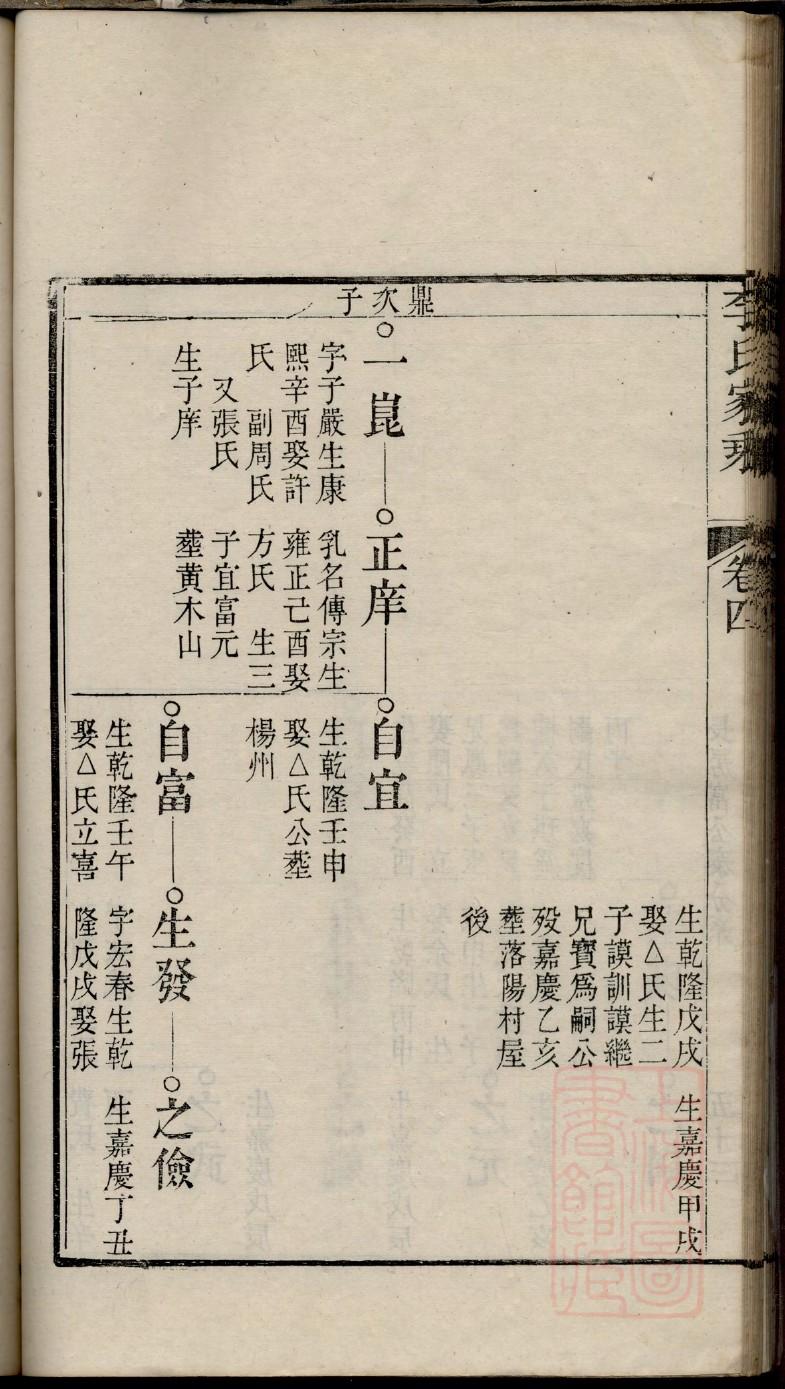 李氏家
卷四
鼎次子
生乾隆戊戌
娶△氏生二
子謨訓謨繼
兄寶爲嗣公
殁嘉慶乙亥
塟落陽村屋
後
生嘉慶甲戌
一崑
字子嚴生康
熙辛酉娶許
氏 副周氏
又張氏
生子庠
正庠
乳名傳宗生
雍正己酉娶
方氏 生三
子宜富元
塟黄木山
自宜
生乾隆壬申
娶△氏公塟
楊州
自富
生乾隆壬午
娶△氏立喜
生發
字宏春生乾
隆戊戌娶張
之儉
生嘉慶丁丑